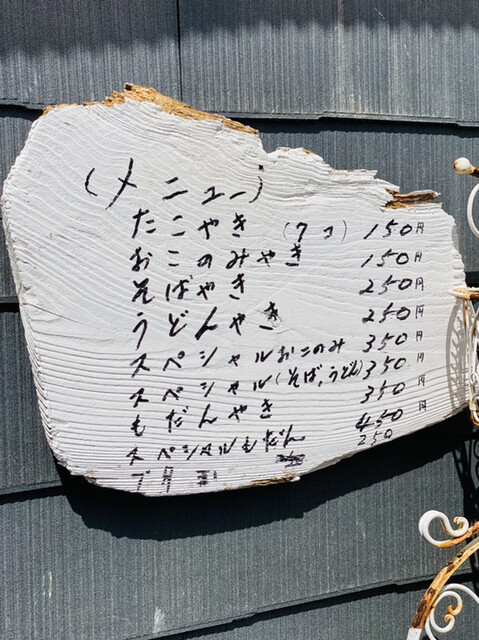 (メニュー)
たこやき (7コ) 150円
おこのみやき 150円
そばやき 250円
うどんやき 250円
スペシャルおこのみ 350円
スペシャル(そば,うどん) 350
もだんやき 350
スペシャルもだん 450円
ブタ 250